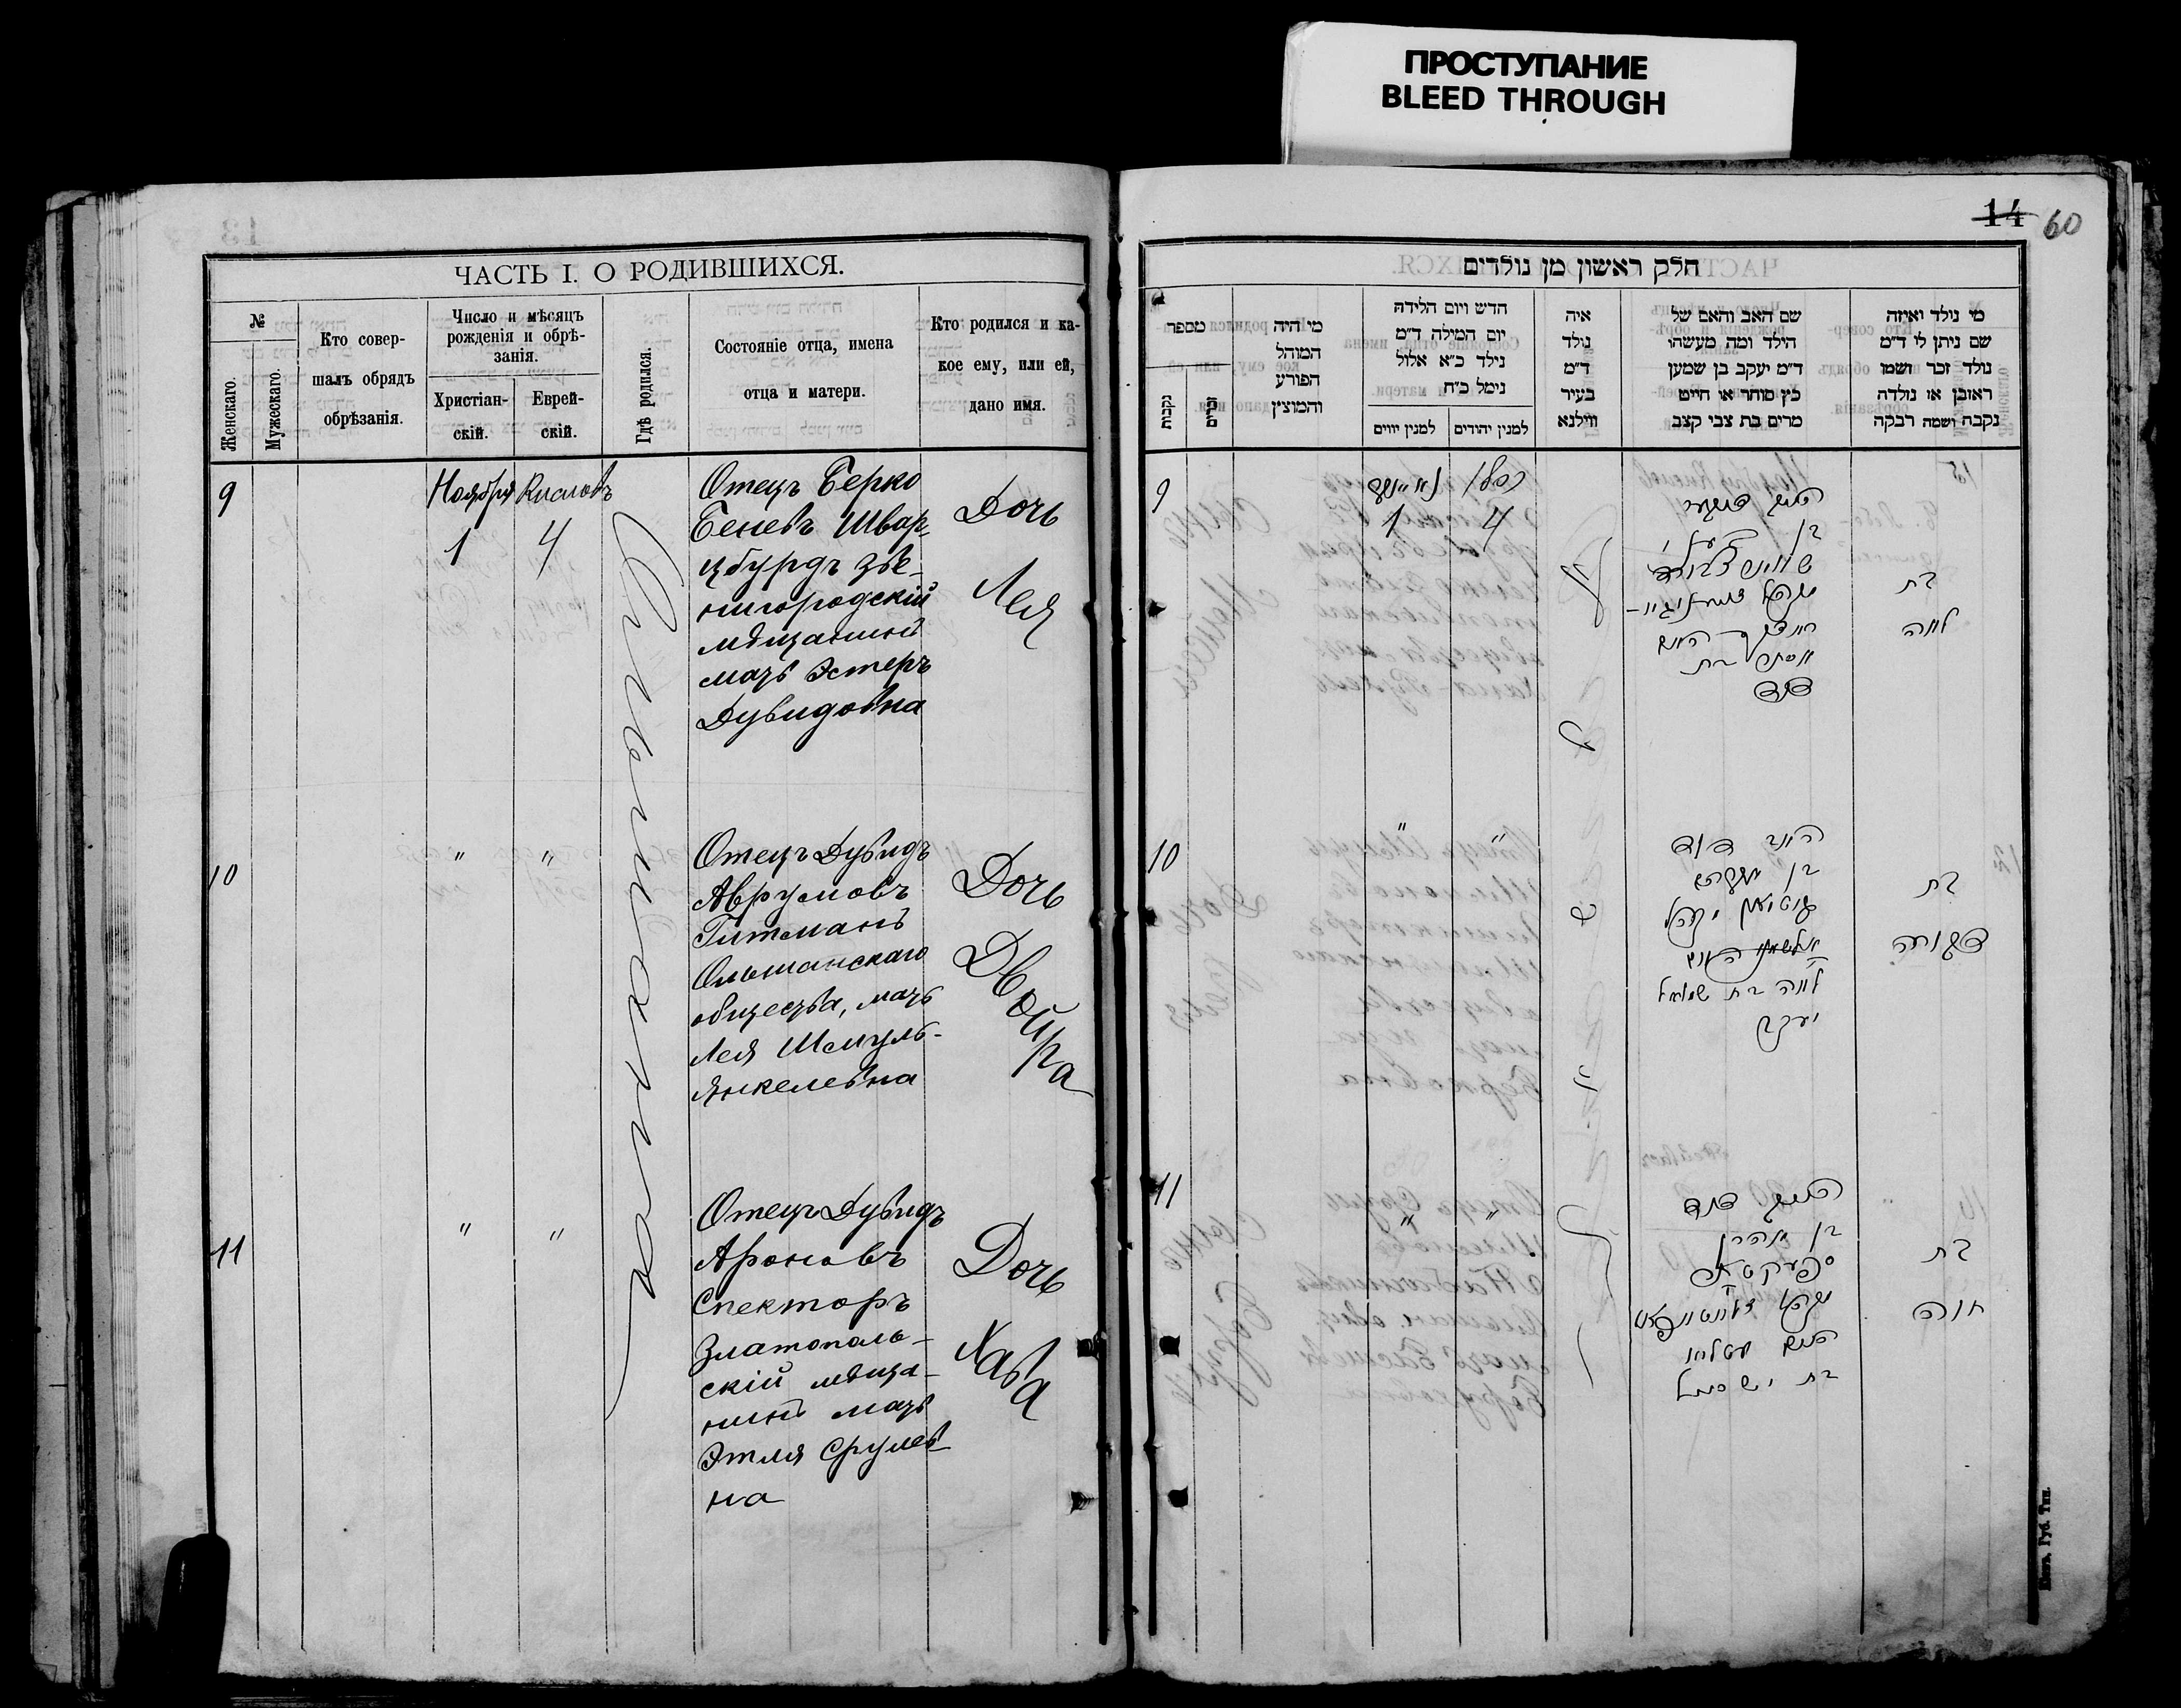 ПРОСТУПАНИЕ
BLEED THROUGH
ЧАСТЬ I. О РОДИВШИХСЯ.
№
Женскаго.
Мужескаго.
Кто совер-
шалъ обрядъ
обрѣзанія.
Число и мѣсяцъ
рожденія и обрѣ-
занія.
Христіан-
скій.
Еврей-
скій.
Гдѣ родился.
Состояніе отца, имена
отца и матери.
Кто родился и ка-
кое ему, или ей,
дано имя.
9
Ноября Кислевъ
1 4
Отецъ Берко
Беневъ Швар-
цбурдъ Зве-
нигородскій
мѣщанинъ
мать Эстеръ
Дувидовна
Дочь
Лея
10
" "
Отецъ Дувидъ
Аврумовъ
Гитманъ
Ольшанскаго
общества, мать
Лея Шмуль-
Янкелевна
Дочь
Двойра
11
" "
Отецъ Дувидъ
Ароновъ
Спекторъ
Златополь-
скій мѣща-
нинъ мать
Этля Срулев-
на
Дочь
Хава
14 60
חלק ראשון מן נולדים
מספר
נקבות
זכרים
מי היה
המוהל
הפורע
והמוציץ
חדש ויום הלידה
יום המילה ד״מ
נילד כ״א אלול
נימל כ״ח
למנין יווים
למנין יהודים
איה
נולד
ד״מ
בעיר
ווילנא
שם האב והאם של
הילד ומה מעשהו
ד״מ יעקב בן שמען
כץ סוחר או חייט
מרים בת צבי קצב
מי נולד ואיזה
שם ניתן לי ד״מ
נולד זכר ושמו
ראובן או נולדה
נקבה ושמה רבקה
9
1 4
בן
אסתר בת
דוד
בת
לאה
10
" "
האב דוד
בן אברהם
לאה בת שמואל
יעקב
בת
דבורה
11
" "
האב דוד
בן אהרן
ספעקטאר
בת ישראל
בת
חוה